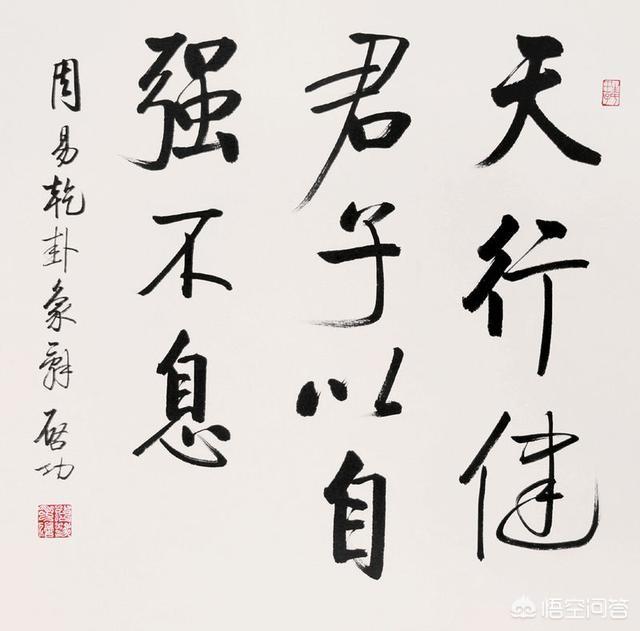 天行健
君子以自
强不息
周易乾卦象辞 启功
悟空问答